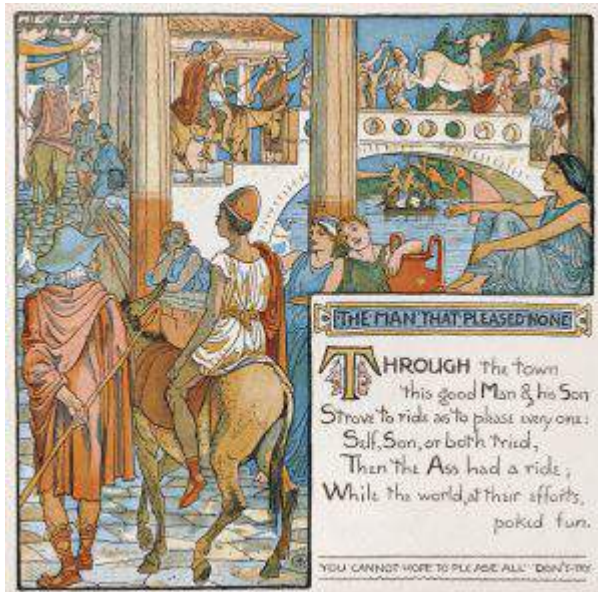 THE MAN THAT PLEASED NONE
THROUGH the town
this good Man & his Son
Strove to ride as to please every one:
Self, Son, or both tried,
Then the Ass had a ride;
While the world, at their efforts,
poked fun.
YOU CANNOT HOPE TO PLEASE ALL DON'T TRY